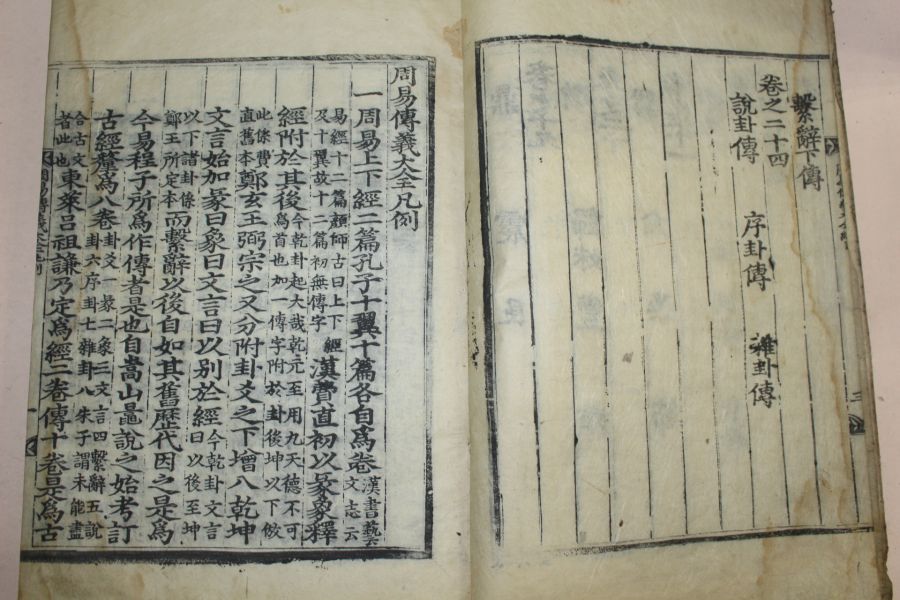 繫辭下傳
卷之二十四
說卦傳 序卦傳 雜卦傳
周易傳義大全凡例
一周易上下經二篇孔子十翼十篇各自爲卷漢書藝文志云
易經十二篇顔師古曰上下經及十翼故十二篇初無傳字漢費直初以彖象釋
經附於其後今乾卦起大哉乾元至用九天德不可爲首也加一傳字附於卦後坤以下倣
此條費直舊本鄭玄王弼宗之又分附卦爻之下增八乾坤
文言始加彖曰象曰文言曰以別於經今乾卦文言曰以後至坤
以下諸卦條鄭王所定本而繫辭以後自如其舊歷代因之是爲
今易程子所爲作傳者是也自嵩山晁說之始考訂
古經釐爲八卷卦爻一彖二象三文言四繫辭五說卦六序卦七雜卦八朱子謂未能盡
合古文者此也東萊呂祖謙乃定爲經二卷傳十卷是爲古
三
一